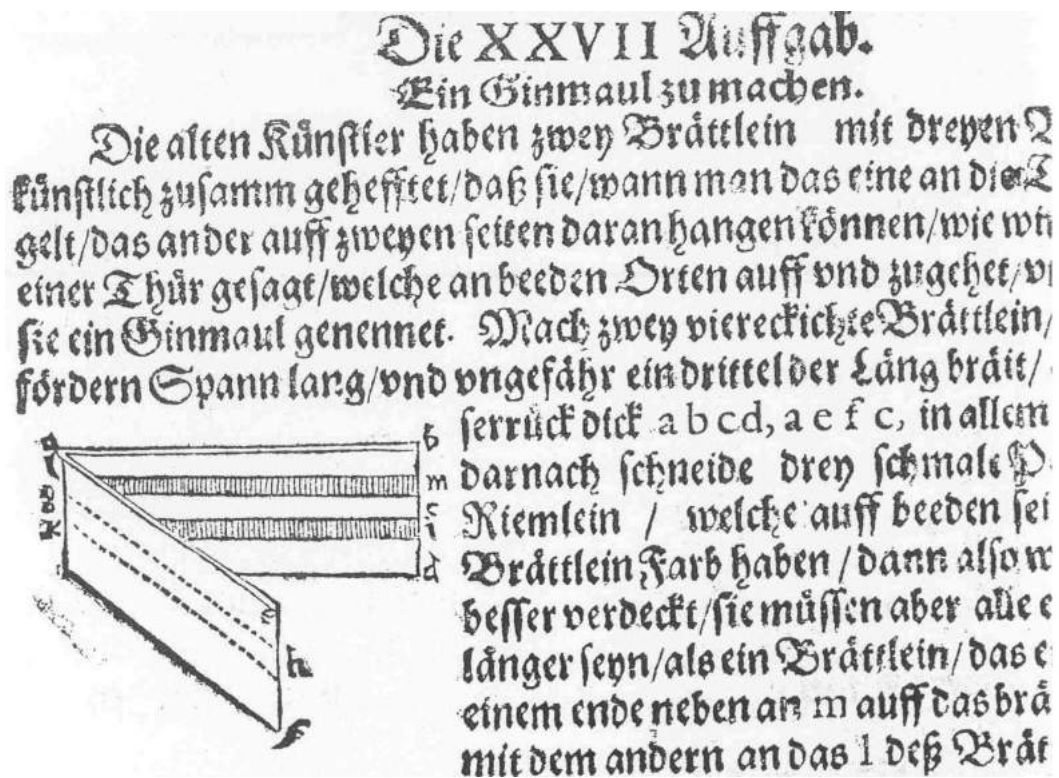 Die XXVII Auffgab.
Ein Ginmaul zu machen.
Die alten Künstler haben zwey Brättlein mit dreyen
künstlich zusamm gehefftet/daß sie/wann man das eine an die
gelt/das ander auff zweyen seiten daran hangen können/wie
einer Thür gesagt/welche an beeden Orten auff vnd zugehet/
sie ein Ginmaul genennet. Mach zwey viereckichte Brättlein/
fördern Spann lang/vnd vngefähr ein drittel der Läng bräit/
serrück dick a b c d, a e f c, in allem
darnach schneide drey schmale
Riemlein / welche auff beeden sei
Brättlein Farb haben / dann also w
besser verdeckt/sie müssen aber alle e
länger seyn/als ein Brättlein/das e
einem ende neben an m auff das brä
mit dem andern an das l deß Brät
a
b
l
g
m
k
c
i
d
e
h
f